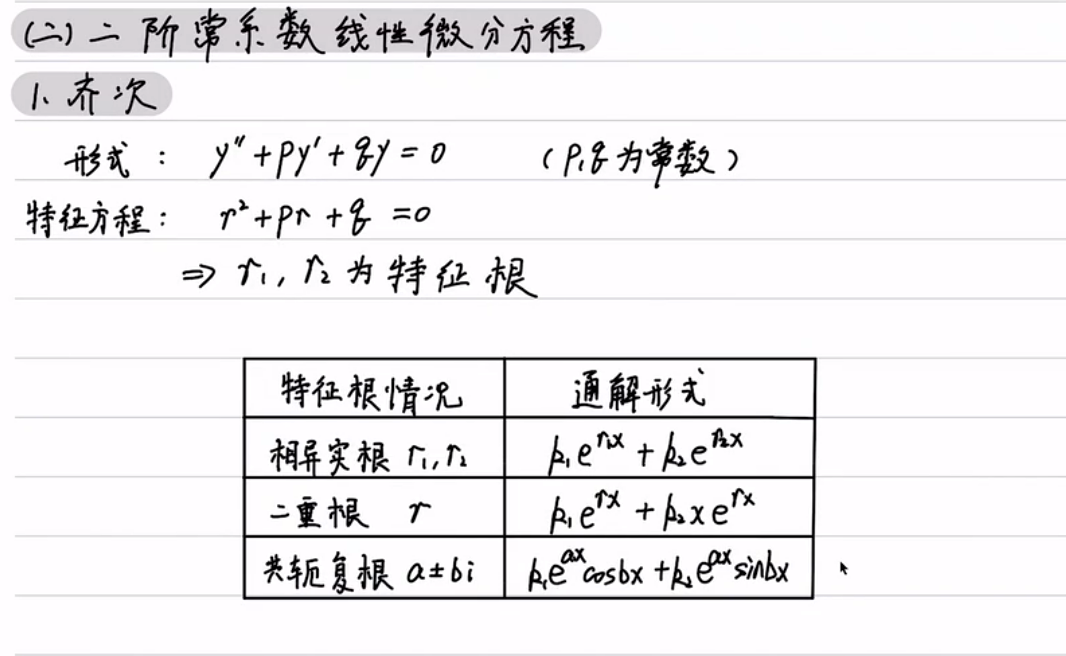 (二)二阶常系数线性微分方程
1、齐次
形式: y″+py′+qy=0 (p,q为常数)
特征方程: r²+pr+q=0
⇒ r₁, r₂为特征根
特征根情况 通解形式
相异实根 r₁,r₂ k₁e^{r₁x}+k₂e^{r₂x}
二重根 r k₁e^{rx}+k₂xe^{rx}
共轭复根 a±bi k₁e^{ax}cosbx+k₂e^{ax}sinbx